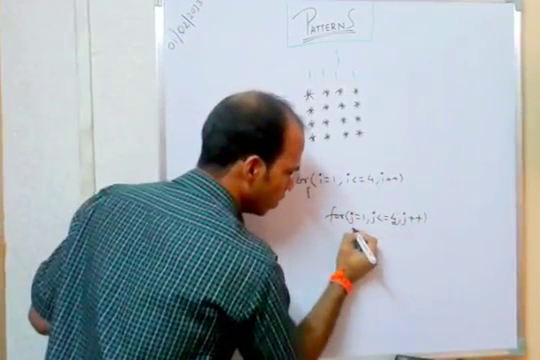 01/02/2023
PATTERNS
j
1 1 1 1
* * * *
* * * *
* * * *
* * * *
for(i=1, i<=4, i++)
{
for(j=1, j<=4, j++)